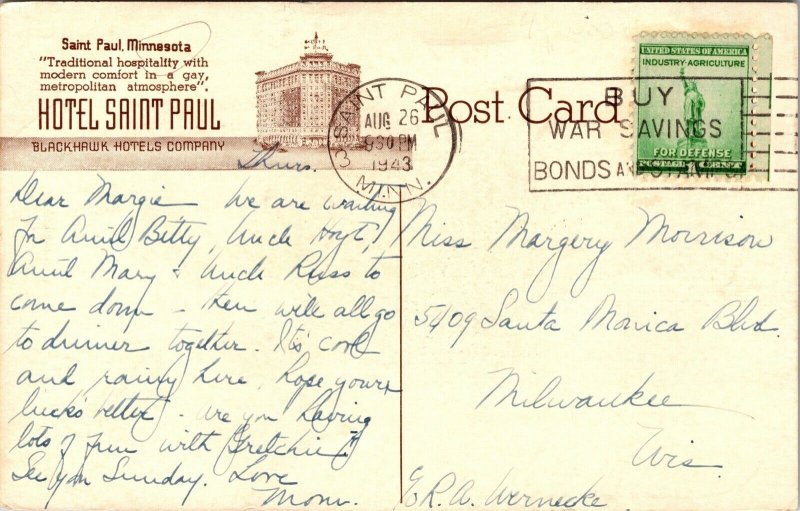 Saint Paul, Minnesota
"Traditional hospitality with
modern comfort in a gay,
metropolitan atmosphere".
HOTEL SAINT PAUL
BLACKHAWK HOTELS COMPANY
Post Card
SAINT PAUL
AUG 26
930 PM
1943
3
MINN.
BUY
WAR SAVINGS
BONDS AND STAMPS
UNITED STATES OF AMERICA
INDUSTRY·AGRICULTURE
FOR DEFENSE
POSTAGE 1 CENT
Thurs.
Dear Margie We are waiting
for Aunt Betty, Uncle Hoyt,
Aunt Mary & Uncle Russ to
come down – then will all go
to dinner together. It's cool
and rainy here, hope your
luck's better – are you having
lots of fun with Gretchie?
See you Sunday. Love
Mom.
Miss Margery Morrison
5409 Santa Monica Blvd.
Milwaukee
Wis.
c/o R. A. Wernecke